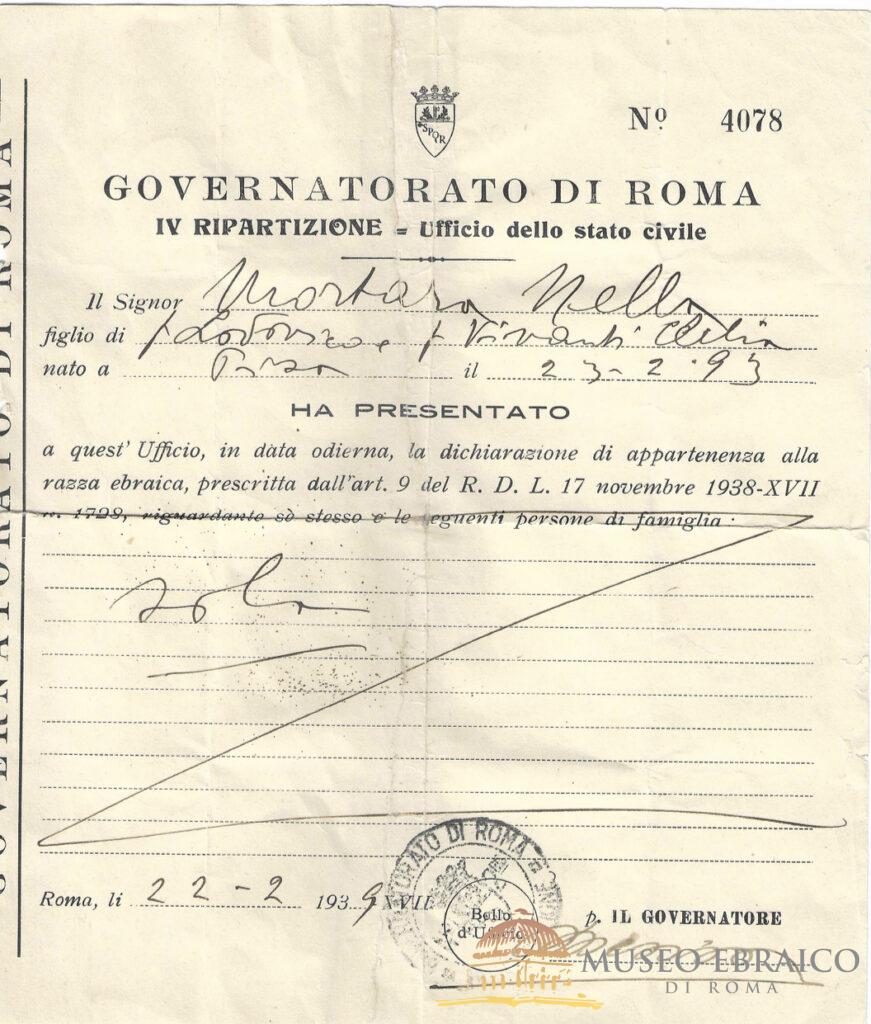 GOVERNATORATO DI ROMA
SPQR
Nº 4078
GOVERNATORATO DI ROMA
IV RIPARTIZIONE = Ufficio dello stato civile
Il Signor Mortara Nella
figlio di / Lodovico e f Vivanti Clelia
nato a Pisa il 23-2.93
HA PRESENTATO
a quest' Ufficio, in data odierna, la dichiarazione di appartenenza alla
razza ebraica, prescritta dall'art. 9 del R. D. L. 17 novembre 1938-XVII
n. 1728, riguardante sè stesso e le eguenti persone di famiglia :
sola
Roma, li 22-2 1939 XVII
GOVERNATORATO DI ROMA
Bollo
d'Ufficio
p. IL GOVERNATORE
MUSEO EBRAICO
DI ROMA